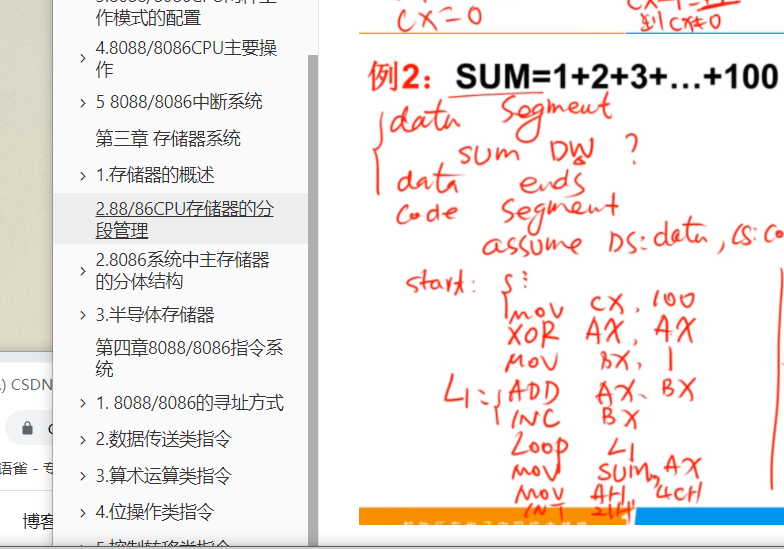 作模式的配置
4.8088/8086CPU主要操
作
5 8088/8086中断系统
第三章 存储器系统
1.存储器的概述
2.88/86CPU存储器的分
段管理
2.8086系统中主存储器
的分体结构
3.半导体存储器
第四章8088/8086指令系
统
1. 8088/8086的寻址方式
2.数据传送类指令
3.算术运算类指令
4.位操作类指令
) CSDN
语雀 - 专
博客
CX=0
到CX=0
例2：SUM=1+2+3+…+100
data Segment
sum DW ?
data ends
Code Segment
assume DS:data, CS:Co
start:
mov CX, 100
XOR AX, AX
MOV BX, 1
L1: ADD AX, BX
INC BX
Loop L1
mov sum, AX
Mov AH, 4CH
INT 21H